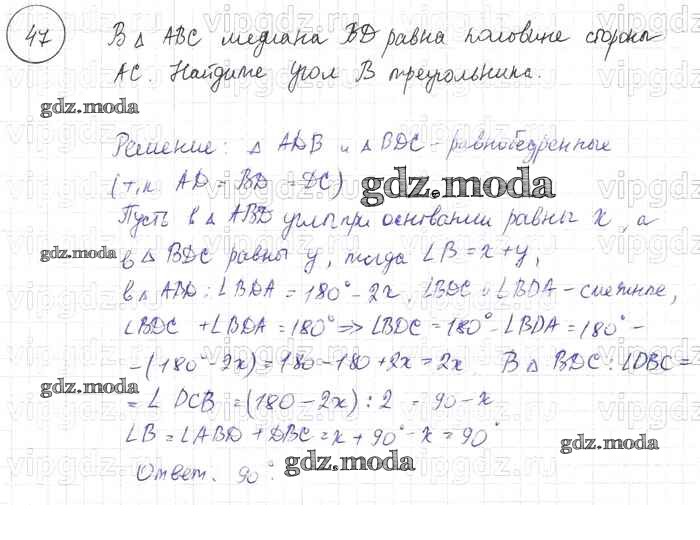 47
В △ ABC медиана BD равна половине стороны
AC. Найдите угол B треугольника.
gdz.moda
Решение: △ ADB и △ BDC - равнобедренные
(т.к. AD = BD = DC)
gdz.moda
Пусть в △ ABD углы при основании равны x, а
gdz.moda
в △ BDC равны y, тогда ∠B = x+y,
в △ ABD: ∠BDA = 180° - 2x, ∠BDC и ∠BDA - смежные,
∠BDC + ∠BDA = 180° => ∠BDC = 180° - ∠BDA = 180° -
- (180° - 2x) = 180 - 180 + 2x = 2x. В △ BDC: ∠DBC =
gdz.moda
= ∠ DCB = (180 - 2x) : 2 = 90 - x
∠B = ∠ABD + DBC = x + 90° - x = 90°
gdz.moda
Ответ. 90°.
gdz.moda
vipgdz